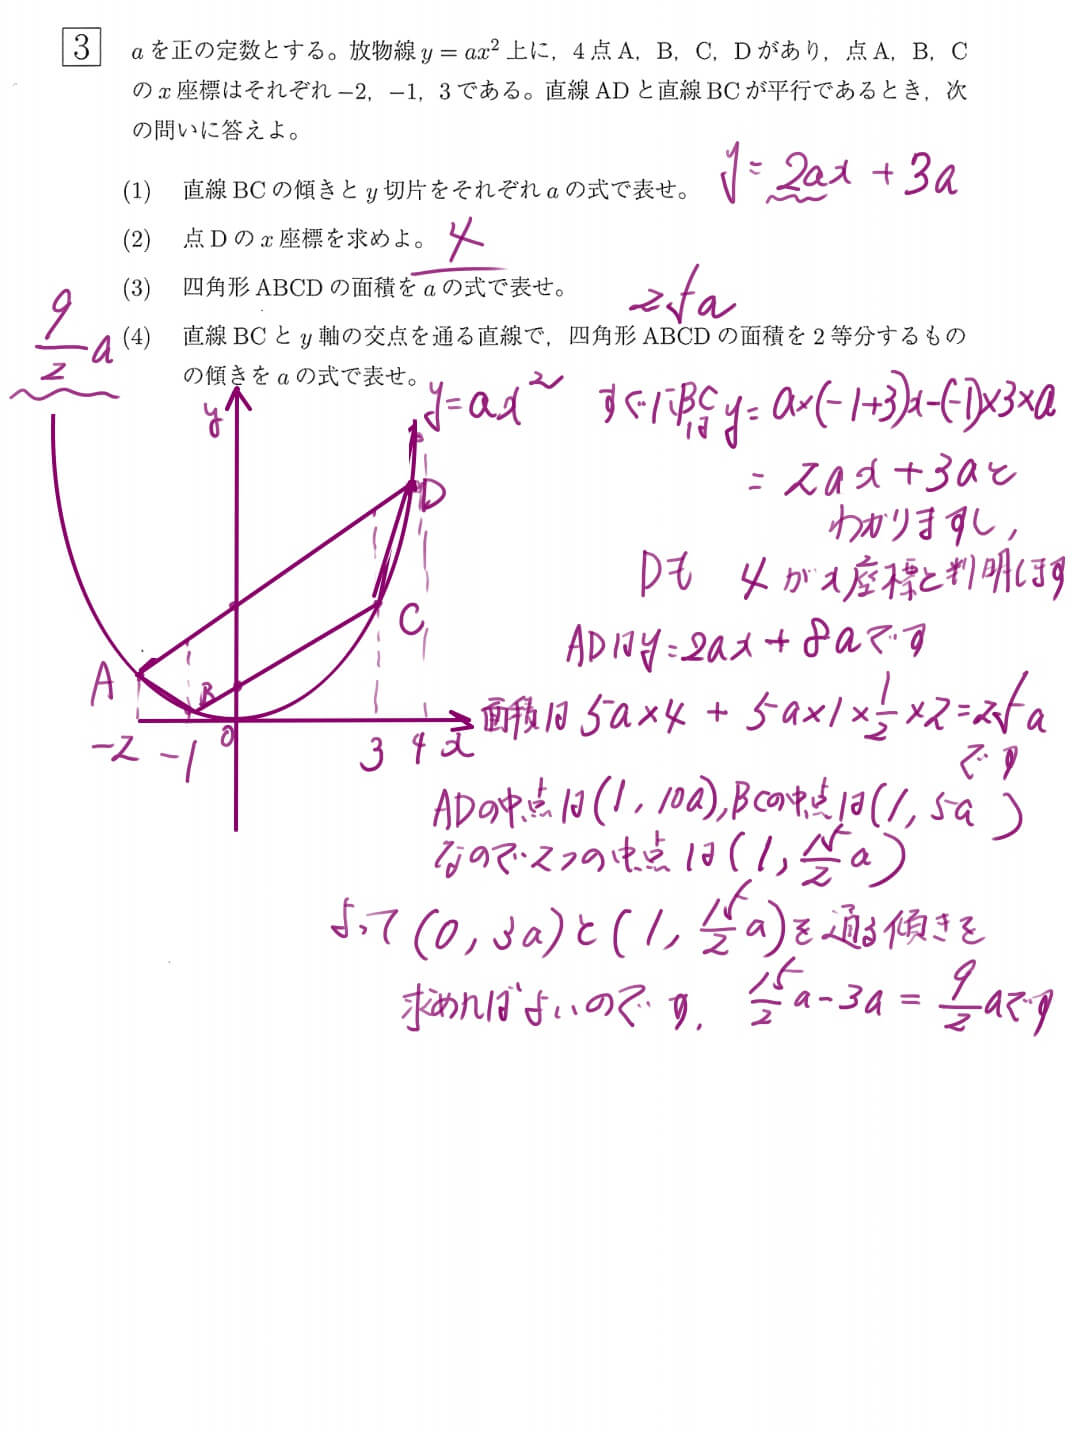 3 aを正の定数とする。放物線 y = ax² 上に，4点A，B，C，Dがあり，点A，B，C
の x 座標はそれぞれ −2，−1，3 である。直線 AD と直線 BC が平行であるとき，次
の問いに答えよ。
y = 2ax + 3a
(1) 直線 BC の傾きと y 切片をそれぞれ a の式で表せ。
(2) 点 D の x 座標を求めよ。 4
(3) 四角形 ABCD の面積を a の式で表せ。
25a
9/2 a
(4) 直線 BC と y 軸の交点を通る直線で，四角形 ABCD の面積を 2 等分するもの
の傾きを a の式で表せ。
y
y=ax²
すぐにBCは y= a×(-1+3)x-(-1)×3×a
= 2ax+3aと
D
わかりますし,
Dも 4がx座標と判明します
C
ADはy=2ax+8aです
A
B
面積は 5a×4 + 5a×1×1/2×2=25a
です
-2 -1 0 3 4 x
ADの中点は(1, 10a), BCの中点は(1, 5a)
なので2つの中点は(1, 15/2 a)
よって(0, 3a)と(1, 15/2 a)を通る傾きを
求めればよいのです. 15/2 a-3a = 9/2 aです